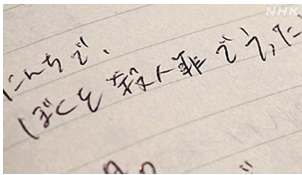 NHK
にんちで、
ぼくを殺人罪でうった